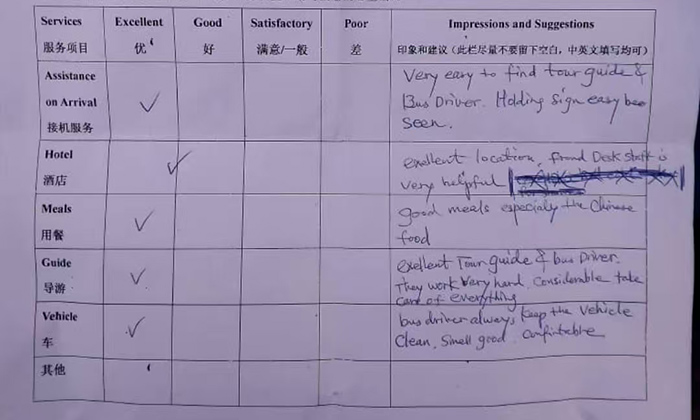 Services Excellent Good Satisfactory Poor Impressions and Suggestions
服务项目 优 好 满意/一般 差 印象和建议（此栏尽量不要留下空白，中英文填写均可）
Assistance
on Arrival
接机服务
Very easy to find tour guide &
Bus Driver. Holding sign easy bee
seen.
Hotel
酒店
exellent location, frond Desk staff is
very helpful
Meals
用餐
good meals especialy the Chinese
food
Guide
导游
exellent Tour guide & bus Driver.
They work very hard. Considerable take
care of everything
Vehicle
车
bus driver always keep the vehicle
Clean, Smell good.
其他